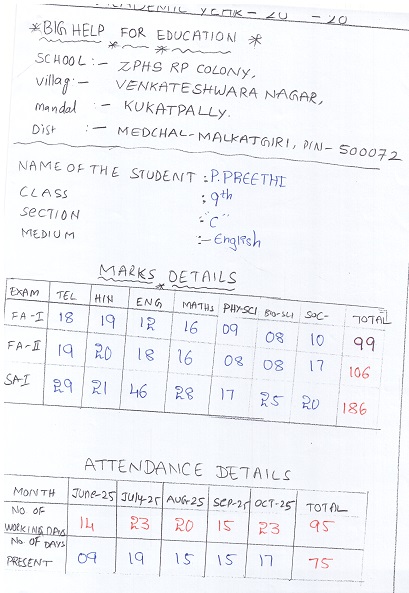 ACADEMIC YEAR - 20 - 20
*BIG HELP FOR EDUCATION *
SCHOOL :- ZPHS RP COLONY,
Villag :- VENKATESHWARA NAGAR,
mandal :- KUKATPALLY.
Dist :- MEDCHAL-MALKATGIRI, PIN- 500072
NAME OF THE STUDENT : P. PREETHI
CLASS : 9th
SECTION : "C"
MEDIUM :- English
MARKS DETAILS
EXAM TEL HIN ENG MATHS PHY-SCI BIO-SCI SOC- TOTAL
FA-I 18 19 12 16 09 08 10 99
FA-II 19 20 18 16 08 08 17 106
SA-I 29 21 46 28 17 25 20 186
ATTENDANCE DETAILS
MONTH June-25 July-25 AUG-25 SEP-25 OCT-25 TOTAL
NO. OF WORKING DAYS 14 23 20 15 23 95
NO OF DAYS PRESENT 09 19 15 15 17 75